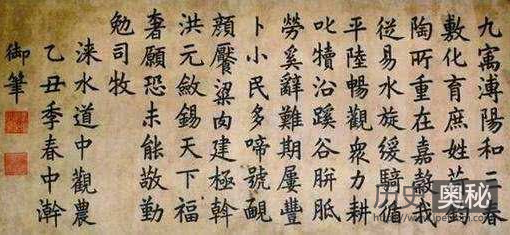 九寓溥陽和三春
敷化育庶姓
陶所重在嘉穀我
從易水旋緩騎循
平陸暢觀衆力耕
叱犢沿蹊谷胼胝
勞奚辭難期屢豐
卜小民多啼號靦
顏饜粱肉建極斡
洪元斂錫天下福
奢願恐未能敬勤
勉司牧
淶水道中觀農
乙丑季春中澣
御筆
历史奥秘